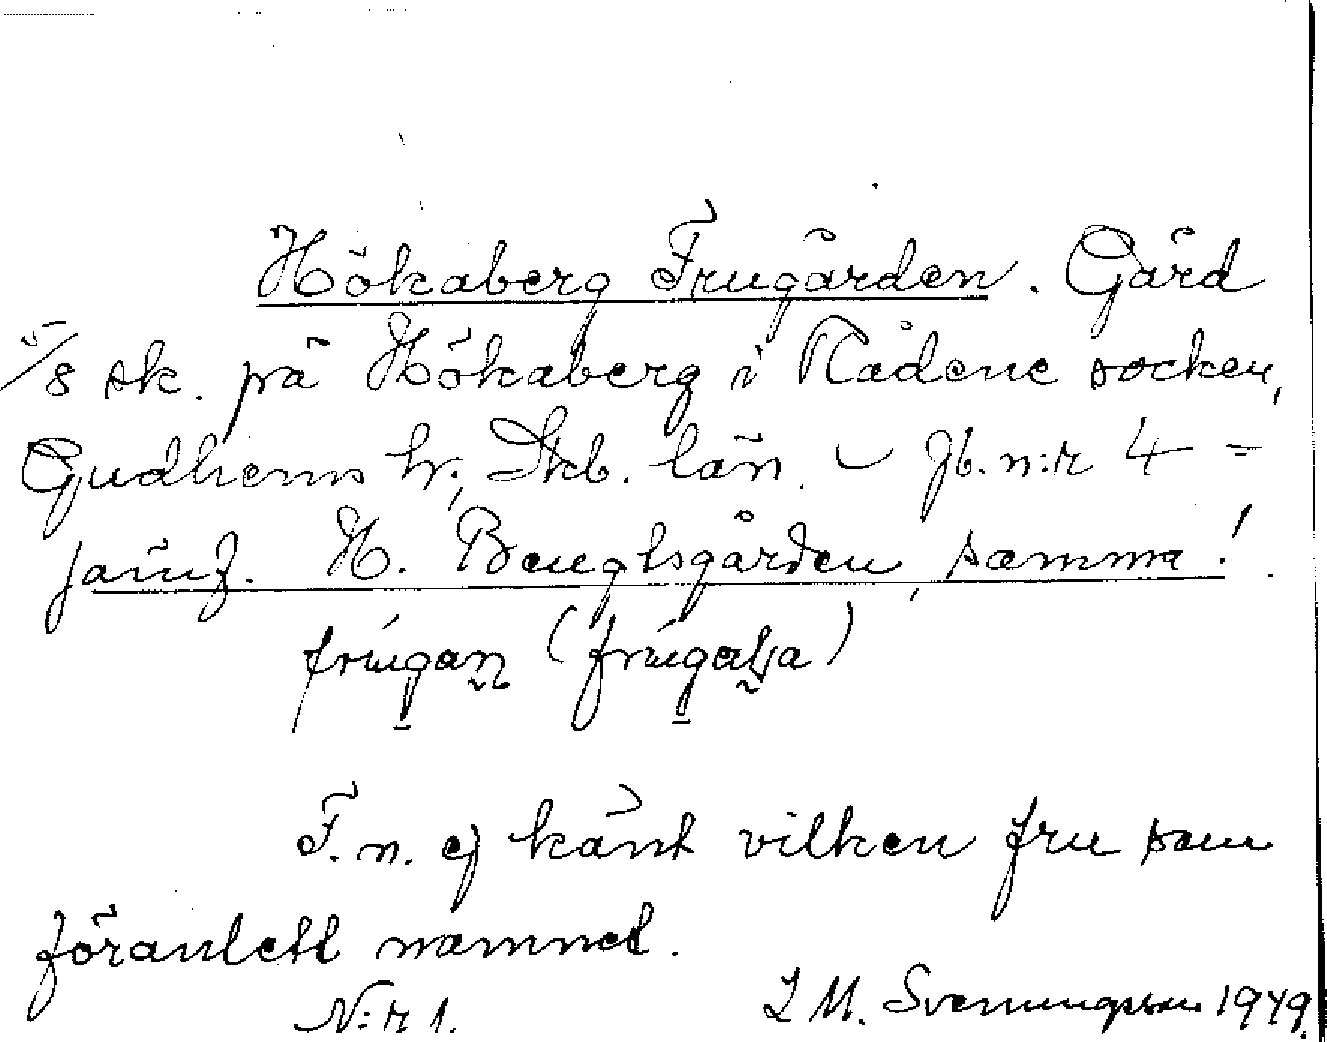 Hökaberg Frugården. Gård
5/8 sk. på Hökaberg i Rådene socken,
Gudhems hr., Skb. län. – Jb. n:r 4 =
jämf. H. Bengtsgården, samma!
frúgan (frúgaļa)
F. n. ej känt vilken fru som
föranlett namnet.
N:r 1. I M. Svenungsson 1949.